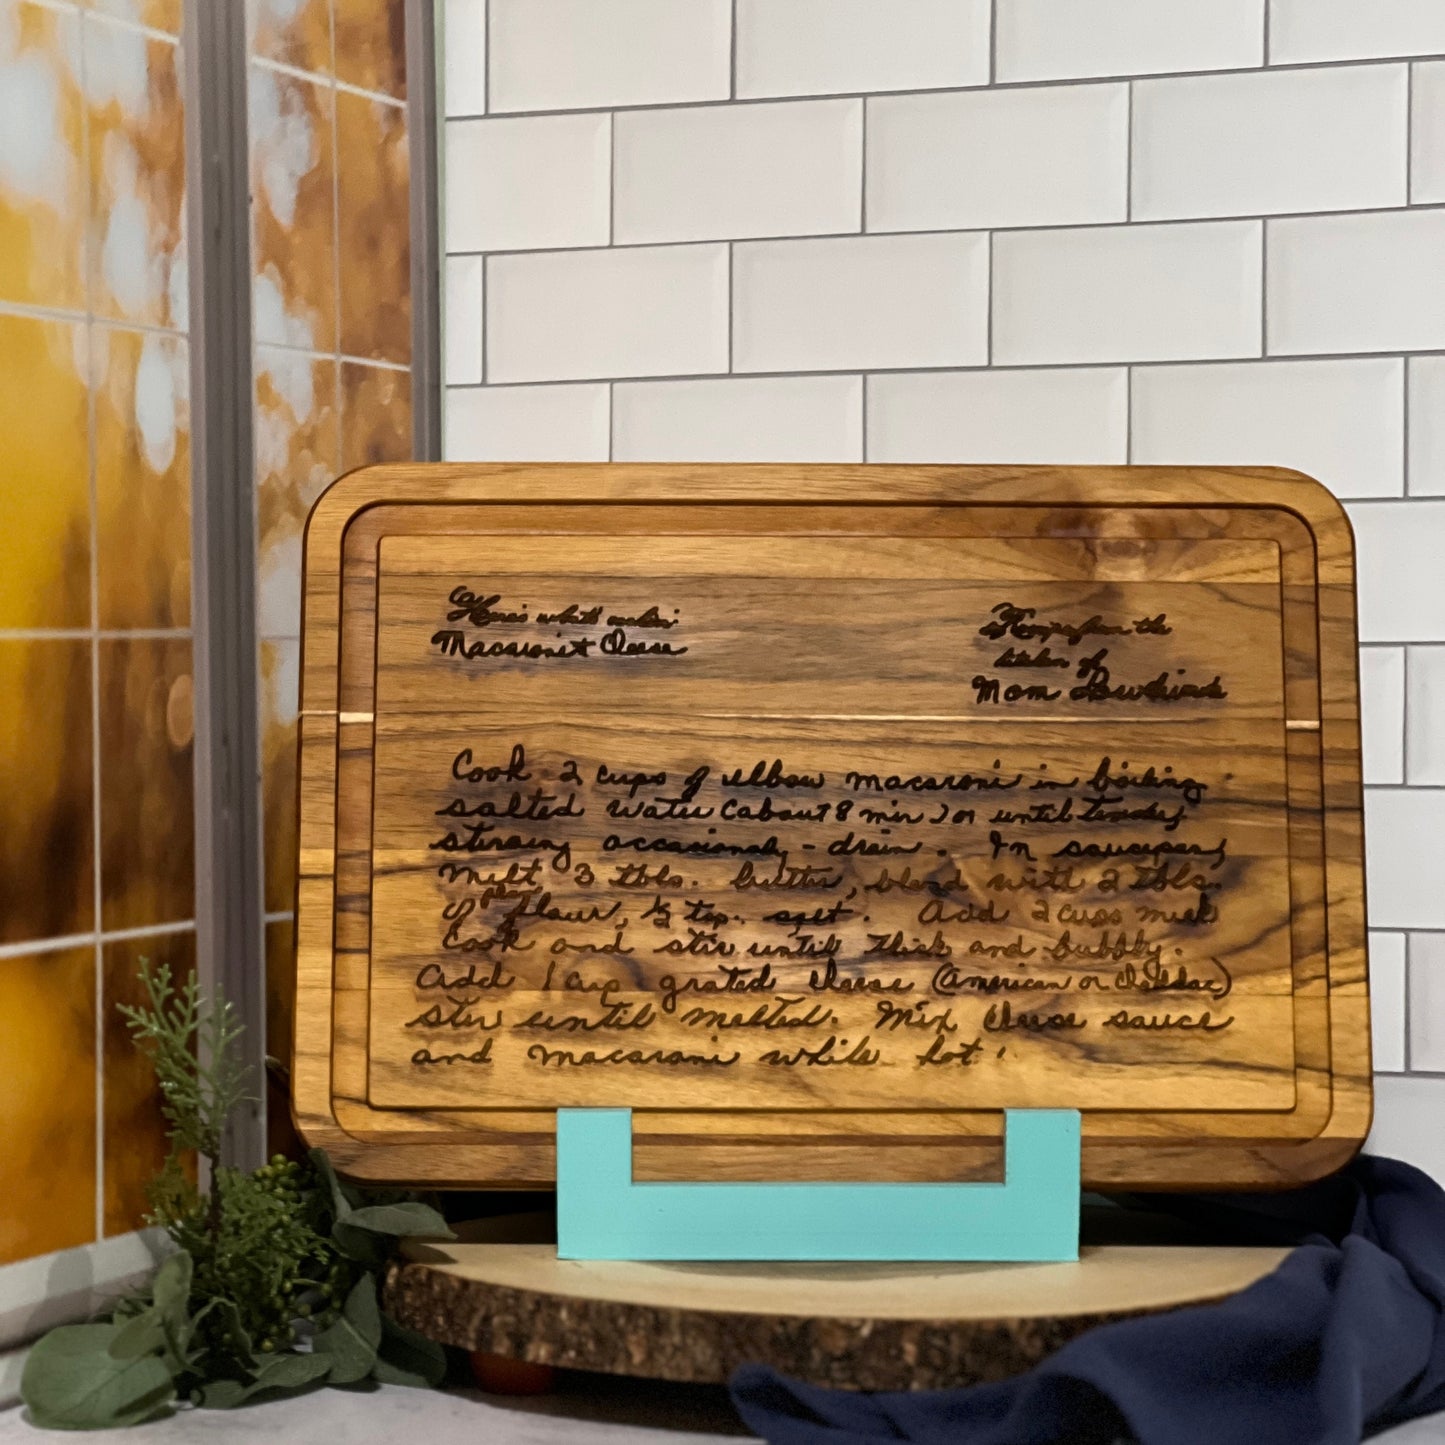 Here's what's cookin'
Macaroni & Cheese
Recipe from the
kitchen of
Mom
Cook 2 cups of elbow macaroni in boiling
salted water (about 8 min) or until tender,
stirring occasionaly - drain. In saucepan,
melt 3 tbls. butter, blend with 2 tbls.
of plain flour, ½ tsp. salt. Add 2 cups milk
Cook and stir until thick and bubbly.
Add 1 cup grated cheese (American or Cheddar)
stir until melted. Mix cheese sauce
and macaroni while hot.